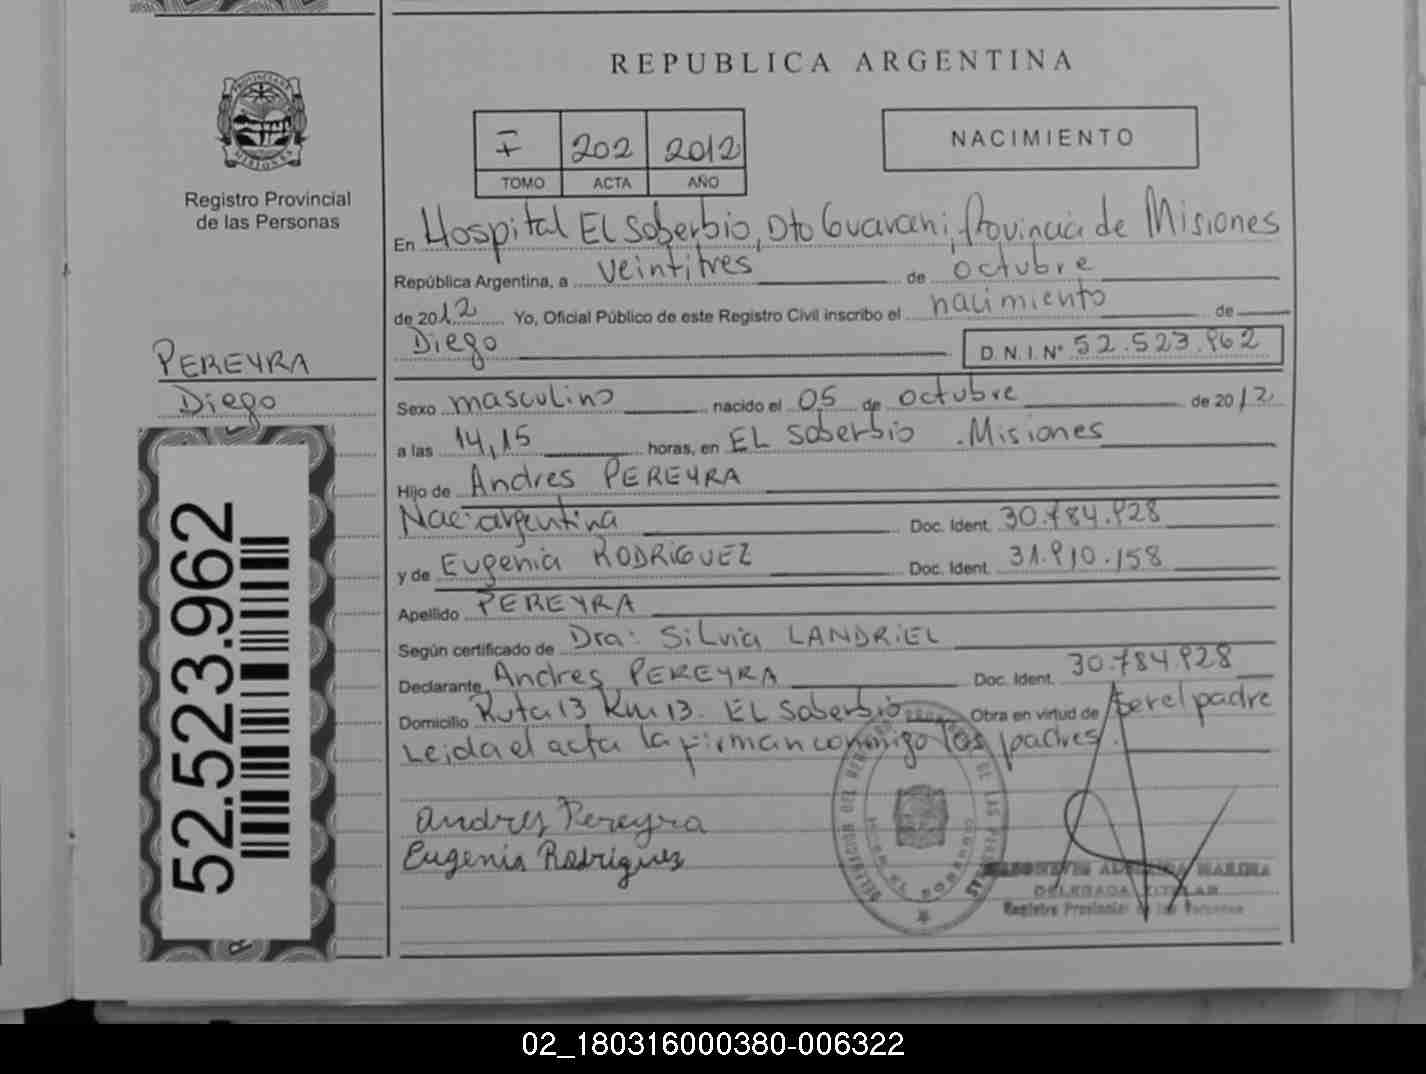 REPUBLICA ARGENTINA
PROVINCIA DE MISIONES
Registro Provincial
de las Personas
I 202 2012
TOMO ACTA AÑO
NACIMIENTO
En Hospital EL Soberbio, Dto Guarani, Provincia de Misiones
República Argentina, a veintitres de octubre
de 2012 Yo, Oficial Público de este Registro Civil inscribo el nacimiento de
Diego D.N.I. Nº 52.523.962
PEREYRA
Diego
Sexo masculino nacido el 05 de octubre de 2012
a las 14,15 horas, en EL Soberbio . Misiones
Hijo de Andres PEREYRA
Nac: argentina Doc. Ident. 30.784.928
y de Eugenia RODRIGUEZ Doc. Ident. 31.910.158
Apellido PEREYRA
Según certificado de Dra: Silvia LANDRIEL
Declarante Andres PEREYRA Doc. Ident. 30.784.928
Domicilio Ruta 13 Km 13. EL Soberbio Obra en virtud de ser el padre
Leida el acta la firman conmigo los padres.
Andres Pereyra
Eugenia Rodriguez
52.523.962
MARINA
DELEGADA TITULAR
Registro Provincial de las Personas
02_180316000380-006322